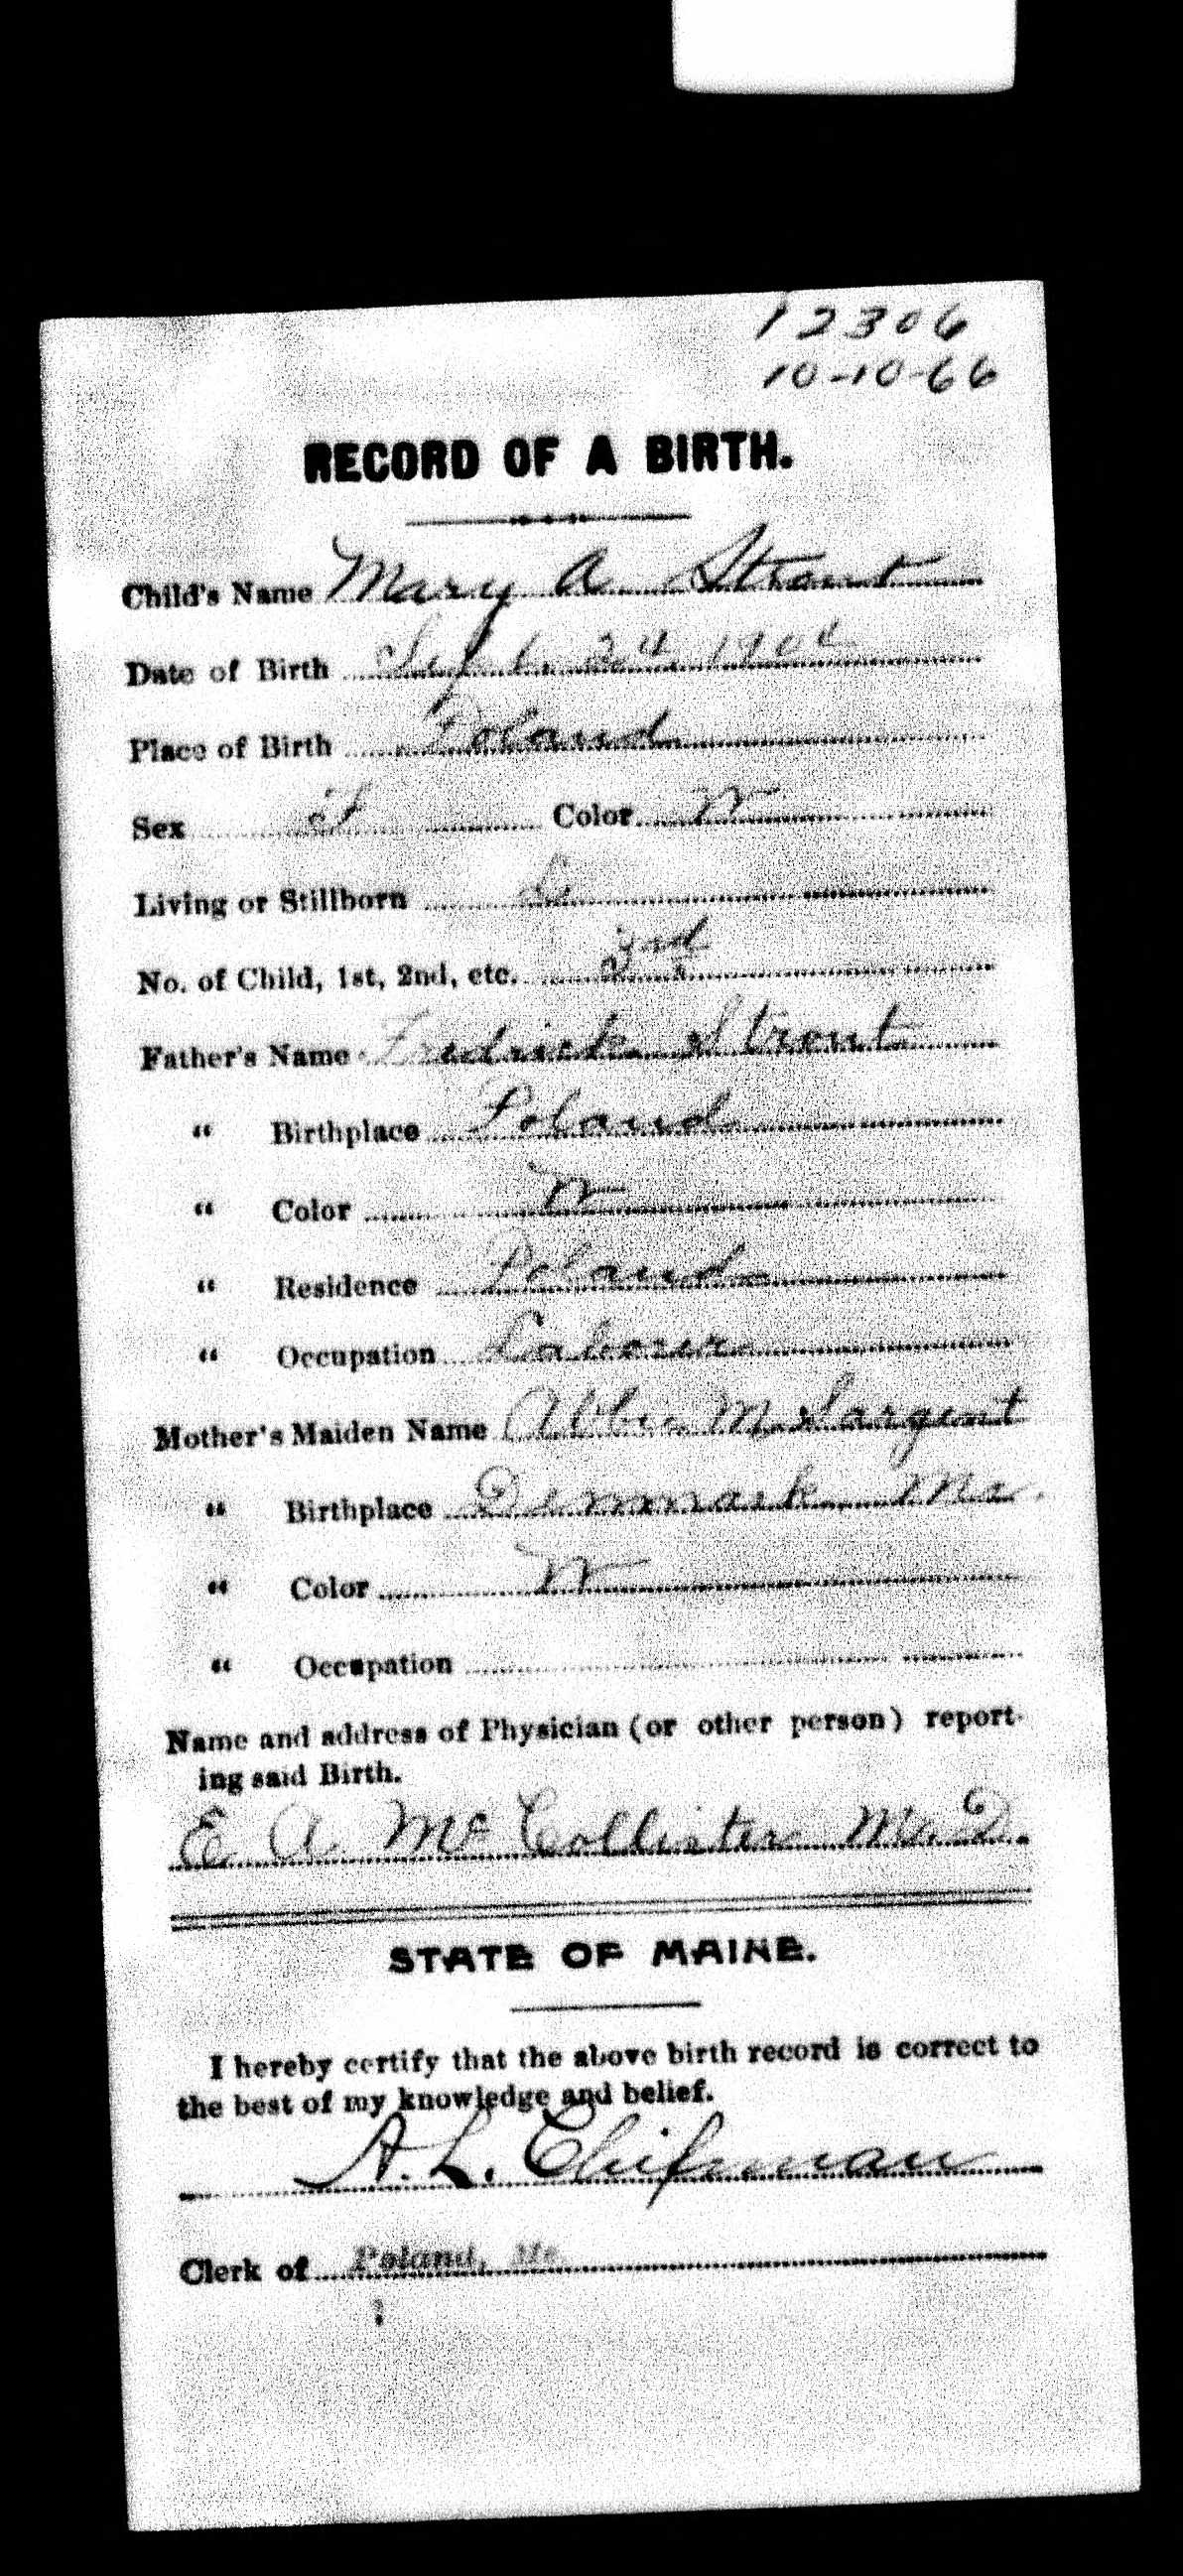 12306
10-10-66
RECORD OF A BIRTH.
Child's Name Mary A. Strout
Date of Birth Sept. 24 1904
Place of Birth Poland
Sex F Color W
Living or Stillborn L
No. of Child, 1st, 2nd, etc. 3rd
Father's Name Fredrick Strout
" Birthplace Poland
" Color W
" Residence Poland
" Occupation Laborer
Mother's Maiden Name Abbie M. Sargent
" Birthplace Denmark Me.
" Color W
" Occupation
Name and address of Physician (or other person) report-
ing said Birth.
E A McCollister M.D.
STATE OF MAINE.
I hereby certify that the above birth record is correct to
the best of my knowledge and belief.
A. L. Chipman
Clerk of Poland, Me.